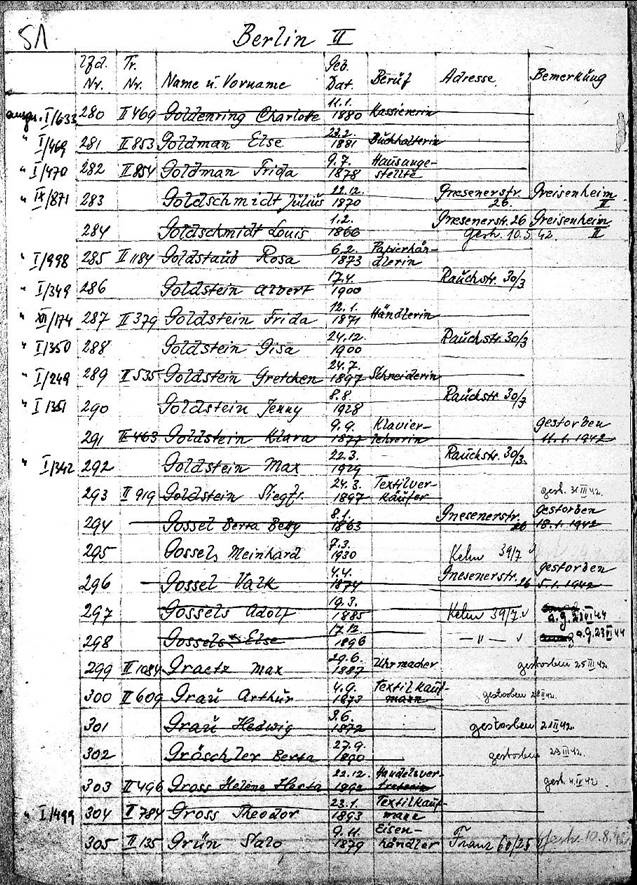 51 Berlin II
Lfd. Nr. Tr. Nr. Name u. Vorname Geb. Dat. Beruf Adresse Bemerkung
ausgew. I/633 280 II 469 Goldenring Charlotte 11.1. 1880 Kassiererin
" I/469 281 II 853 Goldman Else 22.2. 1881 Buchhalterin
" I/470 282 II 854 Goldman Frida 9.7. 1878 Hausange- stellte
" IX/871 283 Goldschmidt Julius 22.12. 1870 Gnesenerstr. 26. Greisenheim II
284 Goldschmidt Louis 1.2. 1866 Gnesenerstr. 26 Greisenheim II gest. 10.5.42.
" I/998 285 II 1184 Goldstaub Rosa 6.2. 1873 Papierhän- dlerin
" I/349 286 Goldstein Albert 17.4. 1900 Rauchstr. 30/3
" XII/174 287 II 379 Goldstein Frida 12.1. 1871 Händlerin
" I/350 288 Goldstein Gisa 24.12. 1900 Rauchstr. 30/3
" I/249 289 II 535 Goldstein Gretchen 24.7. 1897 Schneiderin
" I/351 290 Goldstein Jenny 8.8 1928 Rauchstr. 30/3
291 II 463 Goldstein Klara 9.9. 1877 Klavier- lehrerin gestorben 11.1.1942
" I/342 292 Goldstein Max 22.3. 1929 Rauchstr. 30/3.
293 II 919 Goldstein Siegfr. 24.3. 1897 Textilver- käufer gest. 31 III 42.
294 Gossel Berta Betty 8.1. 1863 Gnesenerstr. 26 gestorben 18.1.1942
295 Gossels Meinhard 7.3. 1930 Kelm 39/7
296 Gossel Valk 4.4. 1874 Gnesenerstr. 26 gestorben 5.1.1942
297 Gossels Adolf 19.3. 1885 Kelm 39/7 a.g. 23 VI 44
298 Gossels Else 17.12. 1896 — " — a.g. 23 VI 44
299 II 1084 Graetz Max 29.6. 1887 Uhrmacher gestorben 25 III 42
300 II 609 Grau Arthur 4.9. 1873 Textilkauf- mann gestorben 42.
301 Grau Hedwig 3.6. 1872 gestorben 42
302 Gröschler Berta 27.9. 1890 gestorben 23 III 42.
303 II 496 Gross Helene Herta 22.12. 1892 Handelsver- treterin gest. 42.
" I/499 304 II 784 Gross Theodor 23.1. 1893 Textilkauf- mann
305 II 135 Grün Salo 9.11. 1879 Eisen- händler Franz 60/25 gest. 10.8.